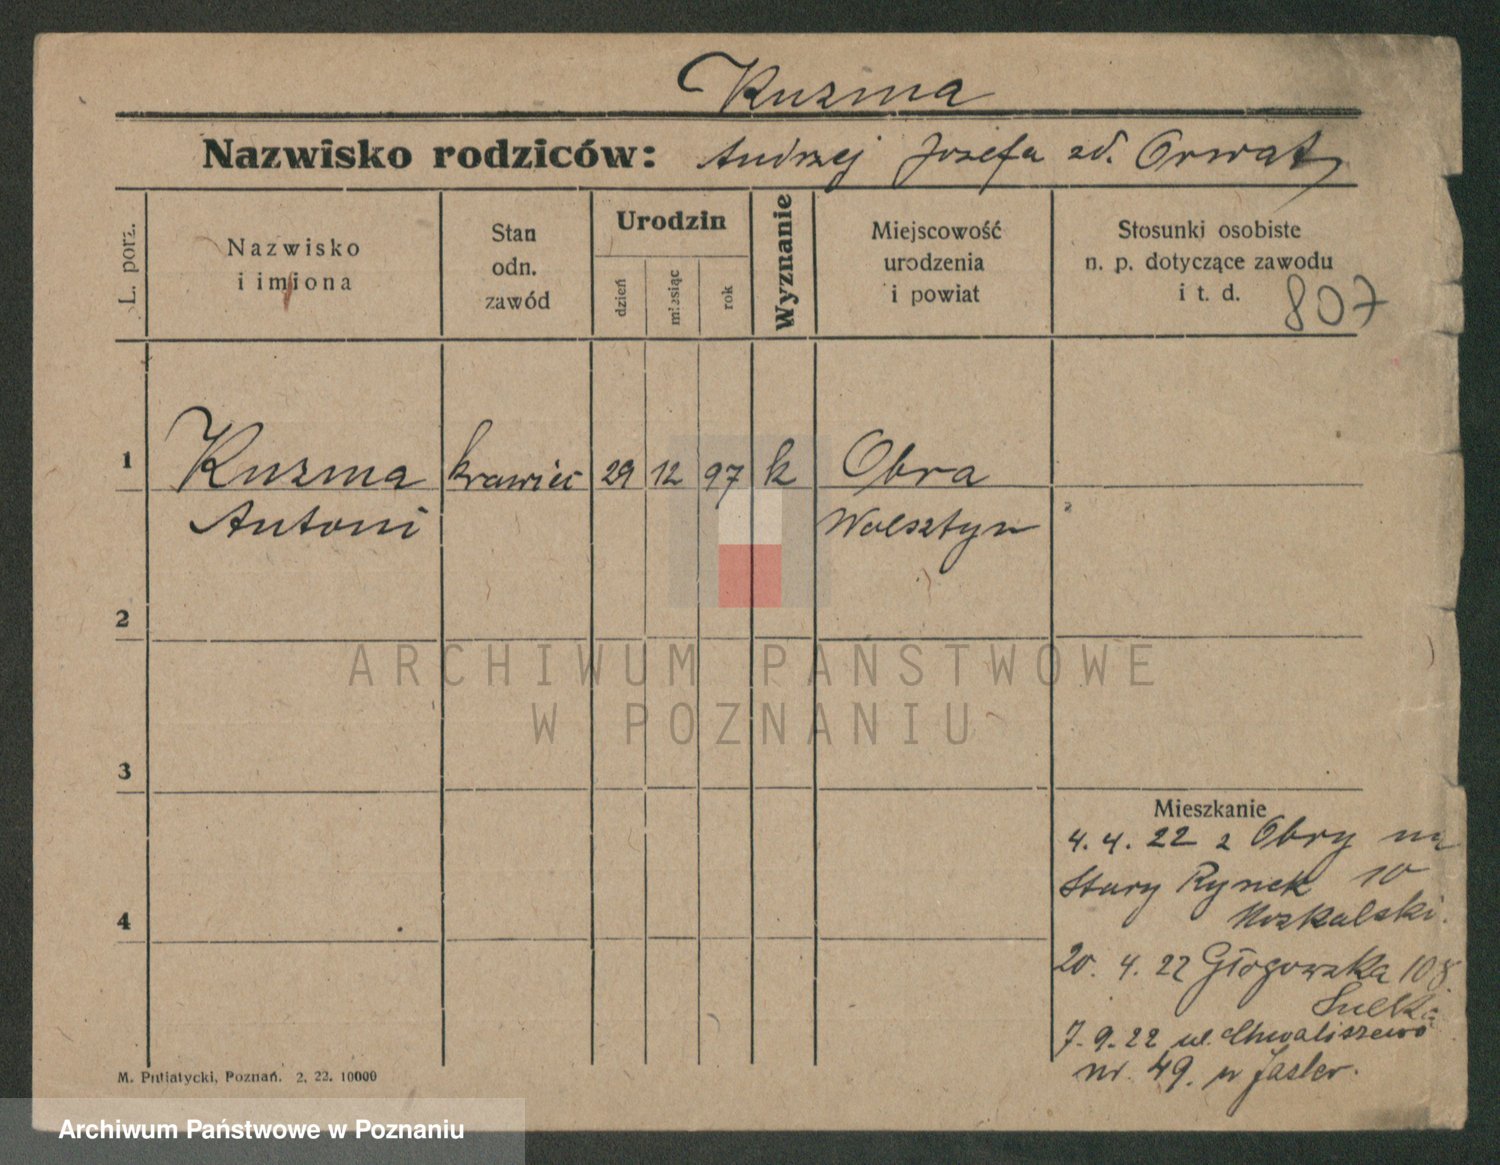 Kuzma
Nazwisko rodziców: Andrzej Józefa zd. Orwat
L. porz.
Nazwisko
i imiona
Stan
odn.
zawód
Urodzin
dzień
miesiąc
rok
Wyznanie
Miejscowość
urodzenia
i powiat
Stosunki osobiste
n. p. dotyczące zawodu
i t. d.
807
1 Kuzma krawiec 29 12 97 k Obra
Antoni Wolsztyn
2
ARCHIWUM PAŃSTWOWE
W POZNANIU
3
Mieszkanie
4. 4. 22 z Obry na
Stary Rynek 10
4
20. 4. 22 Głogowska 108
7. 9. 22 ul. Chwaliszewo
nr. 49. u
M. Putiatycki, Poznań. 2. 22. 10000
Archiwum Państwowe w Poznaniu